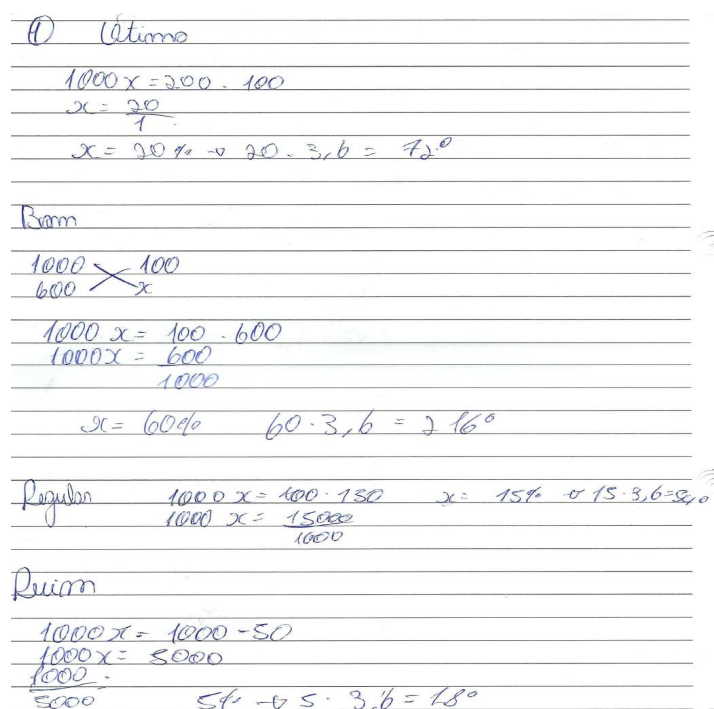 ① Otimo
1000x = 200 . 100
x = 20
1
x = 20% → 20 . 3,6 = 72°
Bom
1000 100
600 x
1000 x = 100 . 600
1000x = 600
1000
x = 60% 60 . 3,6 = 216°
Regular 1000 x = 100 . 150 x = 15% → 15 . 3,6 = 54°
1000 x = 15000
1000
Ruim
1000x = 1000 - 50
1000x = 5000
1000
5000 5% → 5 . 3,6 = 18°